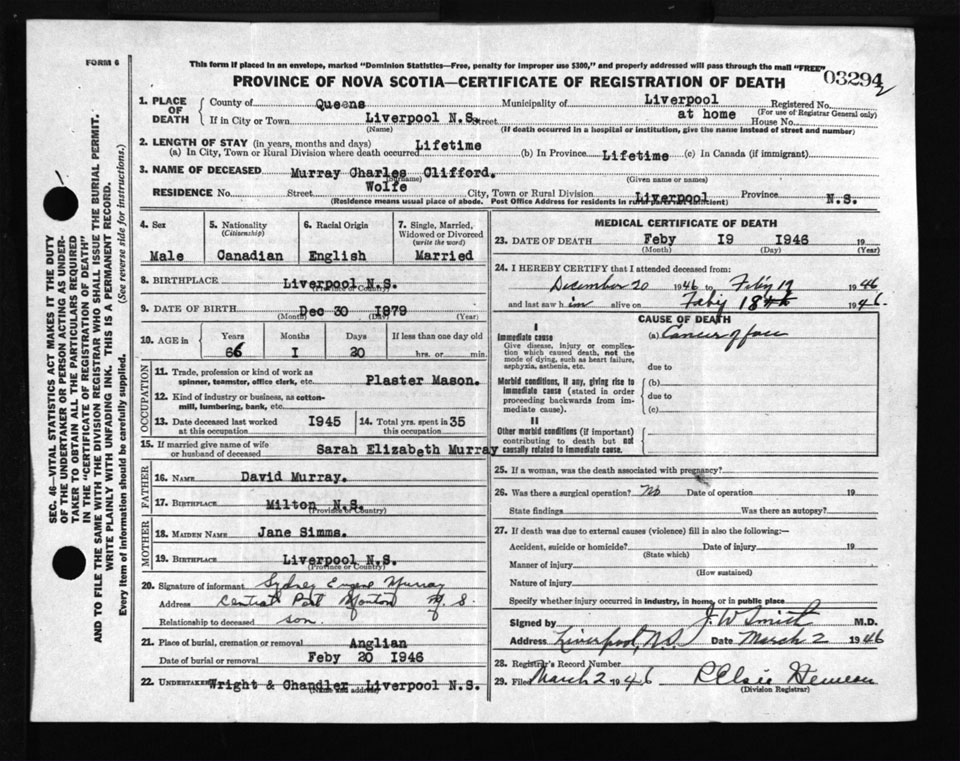 FORM 6
This form if placed in an envelope, marked "Dominion Statistics—Free, penalty for improper use $300," and properly addressed will pass through the mail "FREE"
PROVINCE OF NOVA SCOTIA—CERTIFICATE OF REGISTRATION OF DEATH
03294
SEC. 46—VITAL STATISTICS ACT MAKES IT THE DUTY
OF THE UNDERTAKER OR PERSON ACTING AS UNDER-
TAKER TO OBTAIN ALL THE PARTICULARS REQUIRED
IN THE "CERTIFICATE OF REGISTRATION OF DEATH"
AND TO FILE THE SAME WITH THE DIVISION REGISTRAR WHO SHALL ISSUE THE BURIAL PERMIT.
WRITE PLAINLY WITH UNFADING INK. THIS IS A PERMANENT RECORD.
Every item of information should be carefully supplied. (See reverse side for instructions.)
1. PLACE OF DEATH
County of Queens Municipality of Liverpool Registered No.
(For use of Registrar General only)
If in City or Town Liverpool N.S. Street at home House No.
(Name) (If death occurred in a hospital or institution, give the name instead of street and number)
2. LENGTH OF STAY (in years, months and days)
(a) In City, Town or Rural Division where death occurred Lifetime (b) In Province Lifetime (c) In Canada (if immigrant)
3. NAME OF DECEASED Murray Charles Clifford.
(Surname) (Given name or names)
RESIDENCE No. Street Wolfe City, Town or Rural Division Liverpool Province N.S.
(Residence means usual place of abode. Post Office Address for residents in rural parts not sufficient)
4. Sex
Male
5. Nationality
(Citizenship)
Canadian
6. Racial Origin
English
7. Single, Married,
Widowed or Divorced
(write the word)
Married
8. BIRTHPLACE Liverpool N.S.
(Province or Country)
9. DATE OF BIRTH Dec 30 1979
(Month) (Day) (Year)
10. AGE in
Years Months Days If less than one day old
66 I 20 hrs. or min.
OCCUPATION
11. Trade, profession or kind of work as
spinner, teamster, office clerk, etc. Plaster Mason.
12. Kind of industry or business, as cotton-
mill, lumbering, bank, etc.
13. Date deceased last worked
at this occupation 1945
14. Total yrs. spent in
this occupation 35
15. If married give name of wife
or husband of deceased Sarah Elizabeth Murray
FATHER
16. NAME David Murray.
17. BIRTHPLACE Milton N.S.
(Province or Country)
MOTHER
18. MAIDEN NAME Jane Simms.
19. BIRTHPLACE Liverpool N.S.
(Province or Country)
20. Signature of informant Sydney Eugene Murray
Address Central Port Mouton N. S.
Relationship to deceased son.
21. Place of burial, cremation or removal Anglian
Date of burial or removal Feby 20 1946
22. UNDERTAKER Wright & Chandler Liverpool N.S.
(Name and address)
MEDICAL CERTIFICATE OF DEATH
23. DATE OF DEATH Feby I9 1946 19
(Month) (Day) (Year)
24. I HEREBY CERTIFY that I attended deceased from:
December 20 1946 to Feby 19 1946
and last saw him alive on Feby 18th 1946.
CAUSE OF DEATH
I
Immediate cause
Give disease, injury or complica-
tion which caused death, not the
mode of dying, such as heart failure,
asphyxia, asthenia, etc.
(a) Cancer of face
due to
Morbid conditions, if any, giving rise to
immediate cause (stated in order
proceeding backwards from im-
mediate cause).
(b)
due to
(c)
II
Other morbid conditions (if important)
contributing to death but not
causally related to immediate cause.
25. If a woman, was the death associated with pregnancy?
26. Was there a surgical operation? No Date of operation 19
State findings Was there an autopsy?
27. If death was due to external causes (violence) fill in also the following:—
Accident, suicide or homicide? Date of injury 19
(State which)
Manner of injury
(How sustained)
Nature of injury
Specify whether injury occurred in industry, in home, or in public place
Signed by J. W Smith M.D.
Address Liverpool, N.S. Date March 2 1946
28. Registrar's Record Number
29. Filed March 2 1946
(Division Registrar)